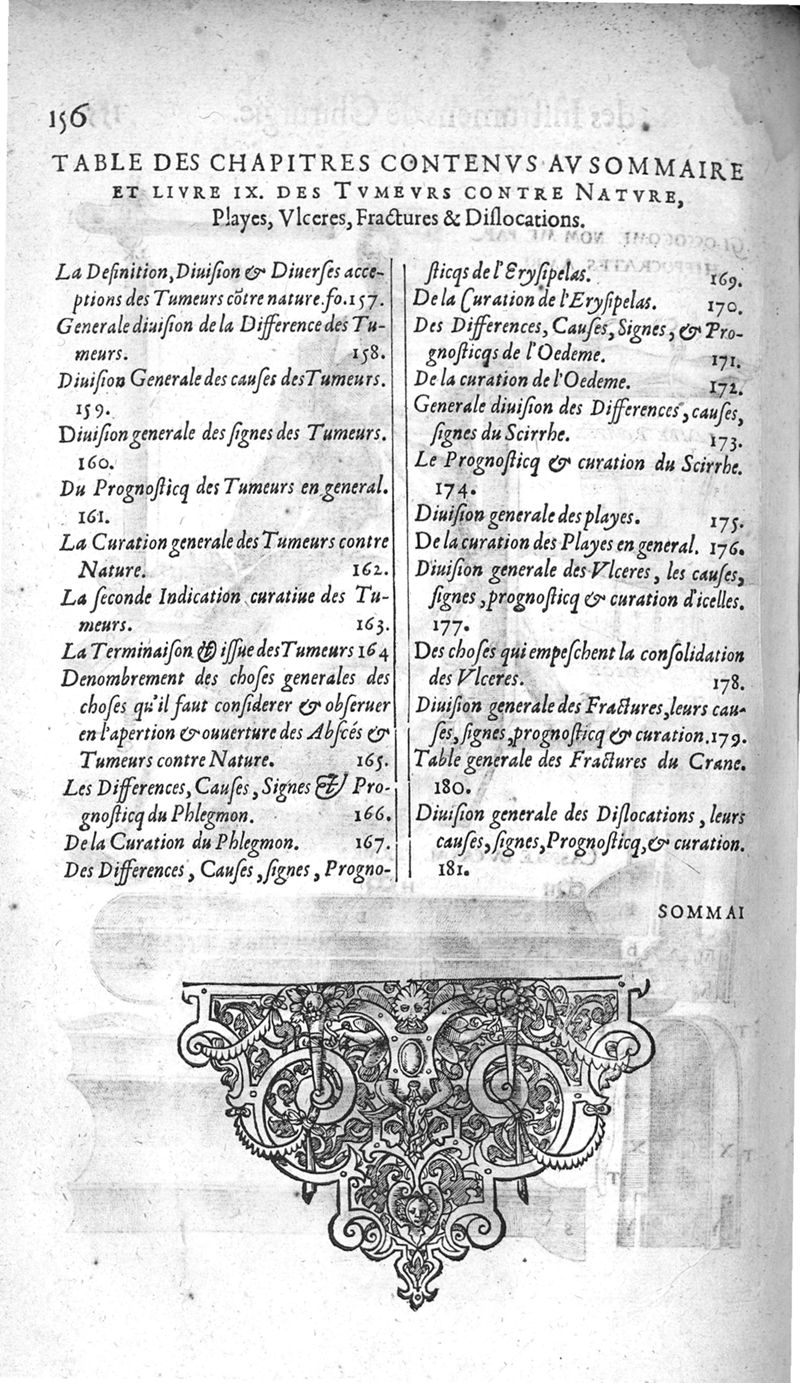 156
TABLE DES CHAPITRES CONTENVS AV SOMMAIRE
ET LIVRE IX. DES TVMEVRS CONTRE NATVRE,
Playes, Vlceres, Fractures & Diſlocations.
La Definition, Diuiſion & Diuerſes acce-
ptions des Tumeurs cõtre nature. fo. 157.
Generale diuiſion de la Difference des Tu-
meurs. 158.
Diuiſion Generale des cauſes des Tumeurs.
159.
Diuiſion generale des ſignes des Tumeurs.
160.
Du Prognoſticq des Tumeurs en general.
161.
La Curation generale des Tumeurs contre
Nature. 162.
La ſeconde Indication curatiue des Tu-
meurs. 163.
La Terminaiſon & iſſue des Tumeurs 164
Denombrement des choſes generales des
choſes qu'il faut conſiderer & obſeruer
en l'apertion & ouuerture des Abſcés &
Tumeurs contre Nature. 165.
Les Differences, Cauſes, Signes & Pro-
gnoſticq du Phlegmon. 166.
De la Curation du Phlegmon. 167.
Des Differences, Cauſes, ſignes, Progno-
ſticqs de l'Eryſipelas. 169.
De la Curation de l'Eryſipelas. 170.
Des Differences, Cauſes, Signes, & Pro-
gnoſticqs de l'Oedeme. 171.
De la curation de l'Oedeme. 172.
Generale diuiſion des Differences, cauſes,
ſignes du Scirrhe. 173.
Le Prognoſticq & curation du Scirrhe.
174.
Diuiſion generale des playes. 175.
De la curation des Playes en general. 176.
Diuiſion generale des Vlceres, les cauſes,
ſignes, prognoſticq & curation d'icelles.
177.
Des choſes qui empeſchent la conſolidation
des Vlceres. 178.
Diuiſion generale des Fractures, leurs cau-
ſes, ſignes, prognoſticq & curation. 179.
Table generale des Fractures du Crane.
180.
Diuiſion generale des Diſlocations, leurs
cauſes, ſignes, Prognoſticq, & curation.
181.
SOMMAI